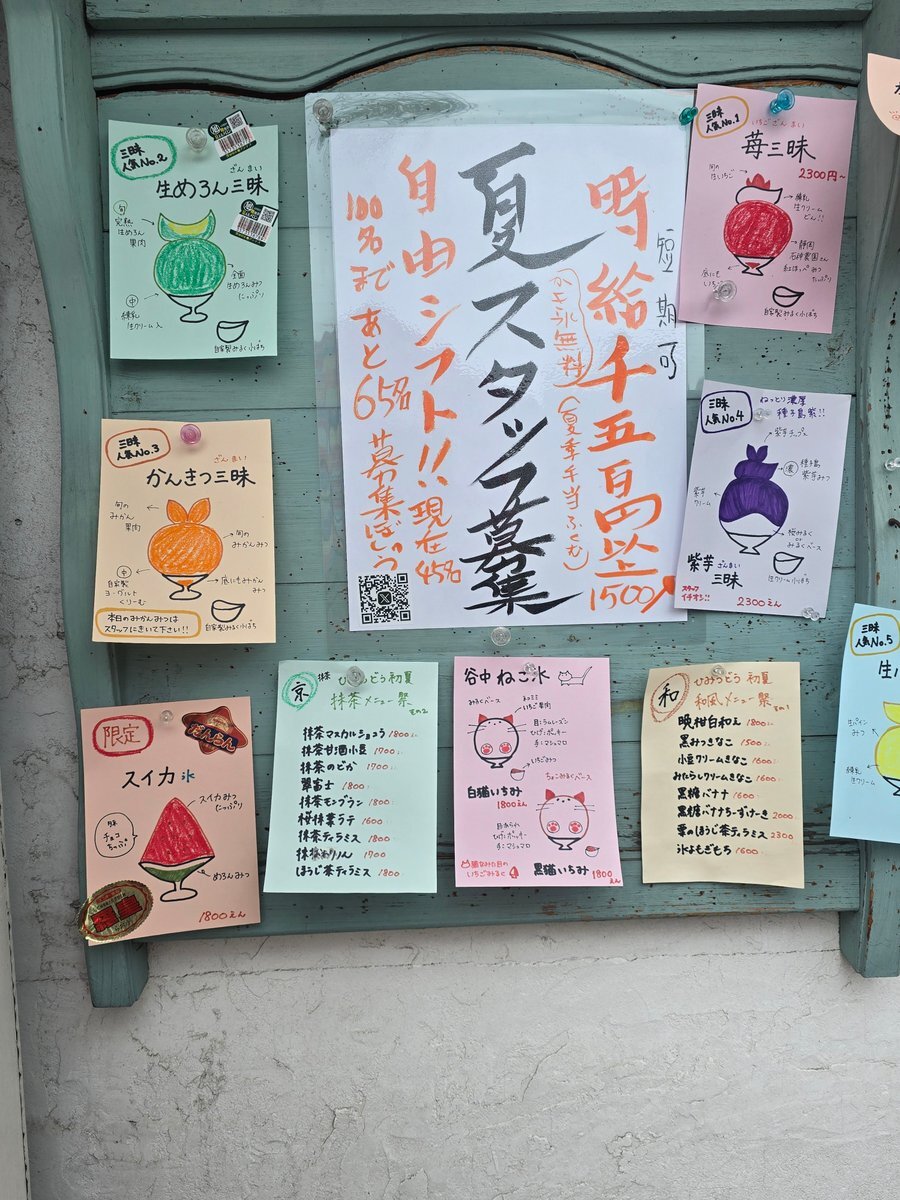 三昧
人気No.2
ざんまい
生めろん三昧
旬
完熟
生めろん
果肉
全面
生めろんみつ
たっぷり
中
練乳
生クリーム入
自家製みるく小ばち
時給千五百円以上
1500
短期可
夏スタッフ募集
かき氷無料
(夏季手当ふくむ)
自由シフト!!現在45名
100名まで あと65名 募集ぼっつ
三昧
人気No.1
いちござんまい
苺三昧
2300円~
旬の
生いちご
練乳
生クリーム
どん!!
静岡
石神農園さん
紅ほっぺみつ
たっぷり
底にも
いちご
自家製みるく小ばち
三昧
人気No.3
ざんまい
かんきつ三昧
旬の
みかん
果肉
旬の
みかんみつ
中
自家製
ヨーグルト
くりーむ
底にもみかん
みつ
本日のみかんみつは
スタッフにきいて下さい!!
自家製みるく小ばち
三昧
人気No.4
ねっとり濃厚
種子島紫!!
紫芋チップス
濃
種子島
紫芋みつ
紫芋
クリーム
桜みるく
or
みるくベース
生クリーム小ばち
紫芋ざんまい
三昧
スタッフ
イチオシ!!
2300えん
三昧
人気No.5
生パイン
みつ
練乳
生クリーム
限定
だんらん
スイカ氷
スイカみつ
たっぷり
味
チョコ
ちっぷ
めろんみつ
1800えん
京
抹茶
ひみつどう 初夏
抹茶メニュー祭
その2
抹茶マスカルショコラ 1800
抹茶甘酒小豆 1700
抹茶のどか 1700
翠富士 1800
抹茶モンブラン 1800
桜抹茶ラテ 1600
抹茶ティラミス 1800
1700
ほうじ茶ティラミス 1800
谷中ねこ氷
みるくベース
ねこミミ
いちご果肉
目:ラムレーズン
ひげ:ポッキー
手:マシュマロ
いちごみつ
白猫いちみ
1800えん
ちょこみるくベース
目:あられ
ひげ:ポッキー
手:マシュマロ
猫なみだ目の
いちごみるく
黒猫いちみ 1800えん
和
ひみつどう 初夏
和風メニュー祭
その1
晩柑白和え 1800
黒みつきなこ 1500
小豆クリームきなこ 1600
みたらしクリームきなこ 1600
黒糖バナナ 1600
黒糖バナナちーずけーき 2000
栗のほうじ茶ティラミス 2300
氷よもぎもち 1600